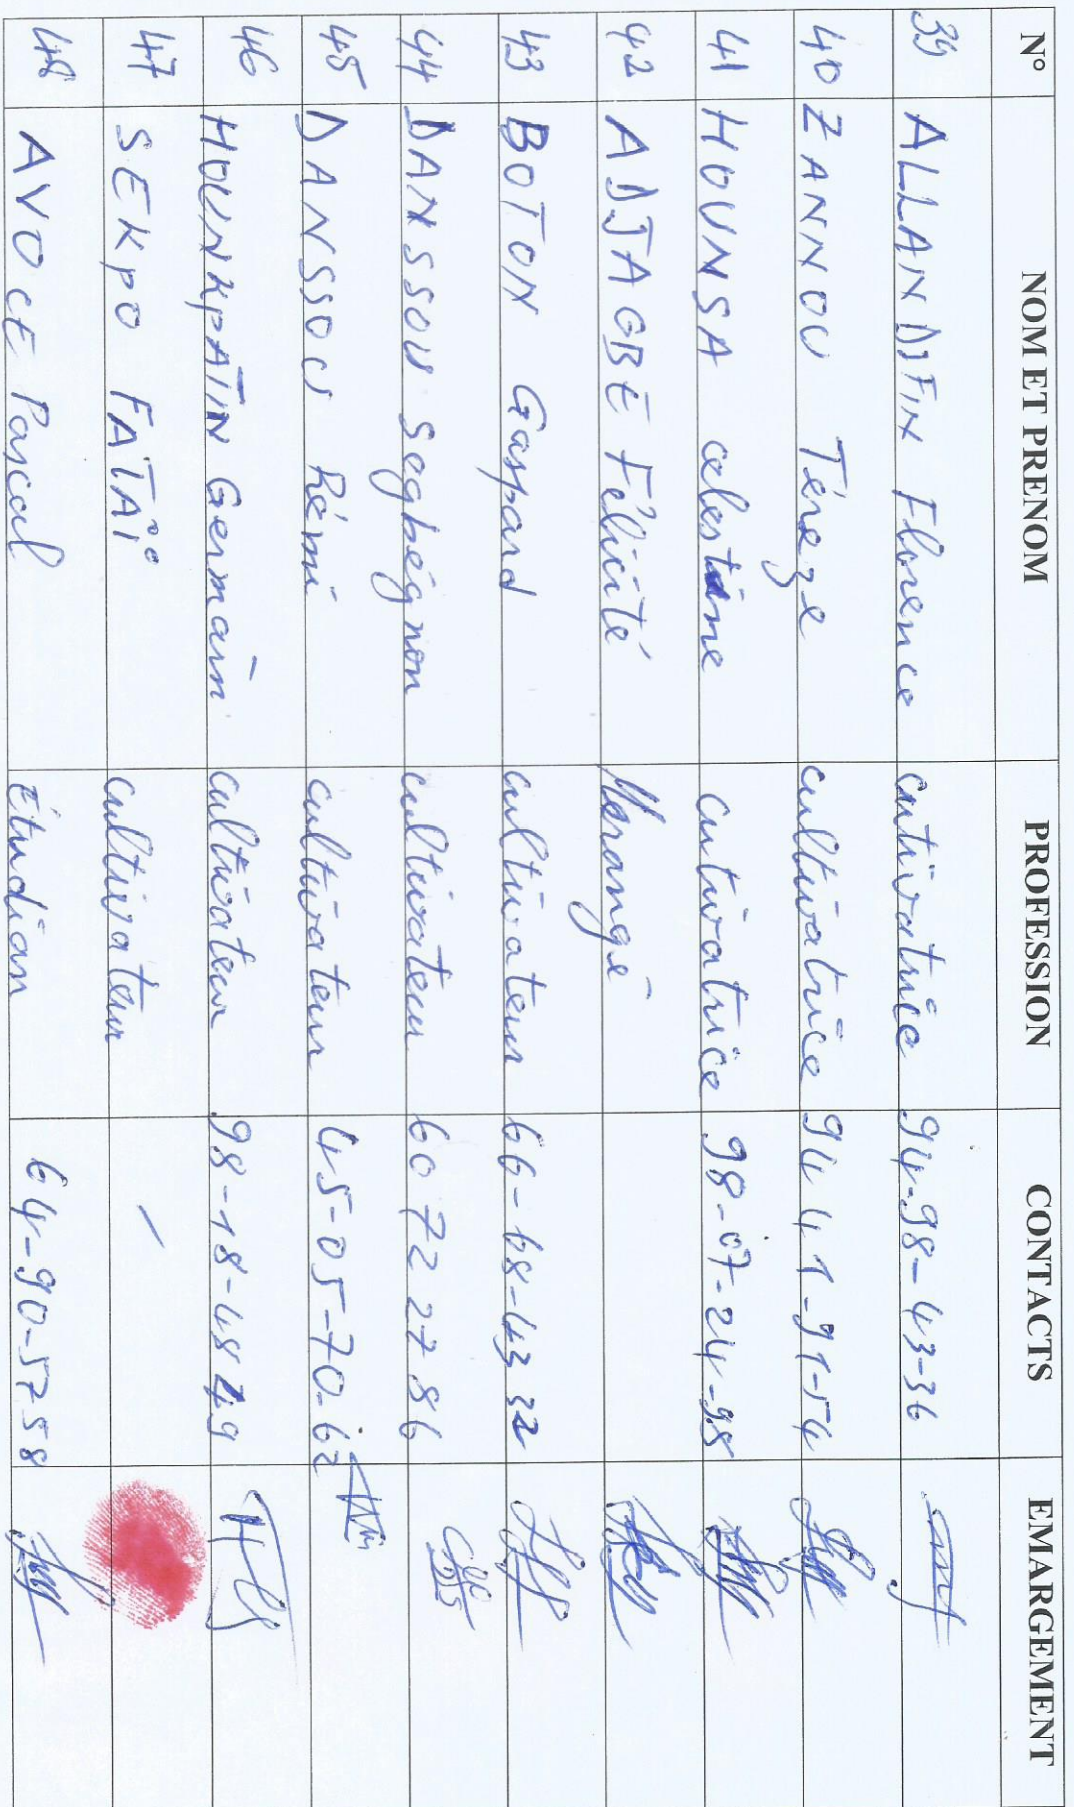 N° NOM ET PRENOM PROFESSION CONTACTS EMARGEMENT
39 ALLANDJFIN Florence cutivatrice 94-98-43-36
40 ZANNOU Téreze cultivatrice 94 41-91-54
41 HOUNSA celestine cutivatrice 98-07-24-98
42 ADJAGBE Félicité Menangè
43 BOTON Gaspard cultivateur 66-68-43 32
44 DANSSOU Sagbégnon cultivateur 60 72 27 86
45 DANSSOU Rémi cultivateur 45-05-70-62
46 HOUNKPATIN Germain cultivateur 98-18-48 49
47 SEKPO FATAÏ cultivateur /
48 AVOCE Pascal Etudian 64-90-57 58